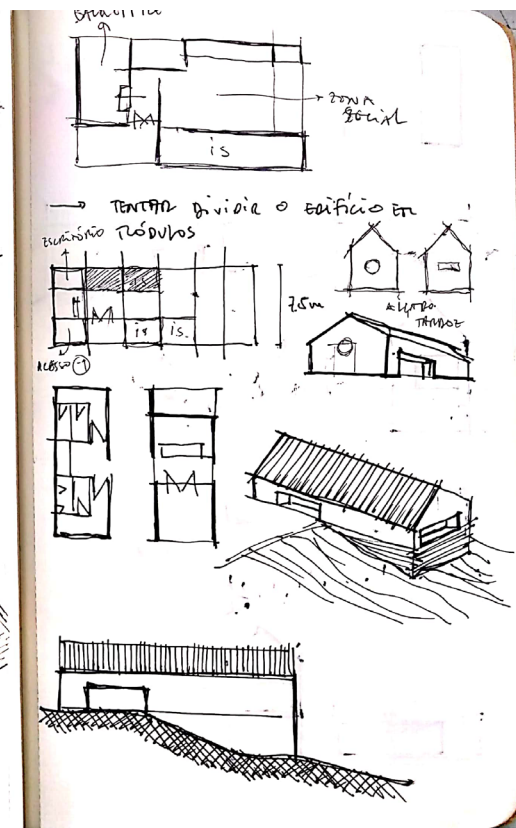 BACKOFFICE
ZONA
SOCIAL
is
→ TENTAR DiViDiR O EDIFÍCIO EM
MÓDULOS
ESCRITÓRIO
is is.
7.5m
ALÇADO
TARDOZ
ACESSO -1